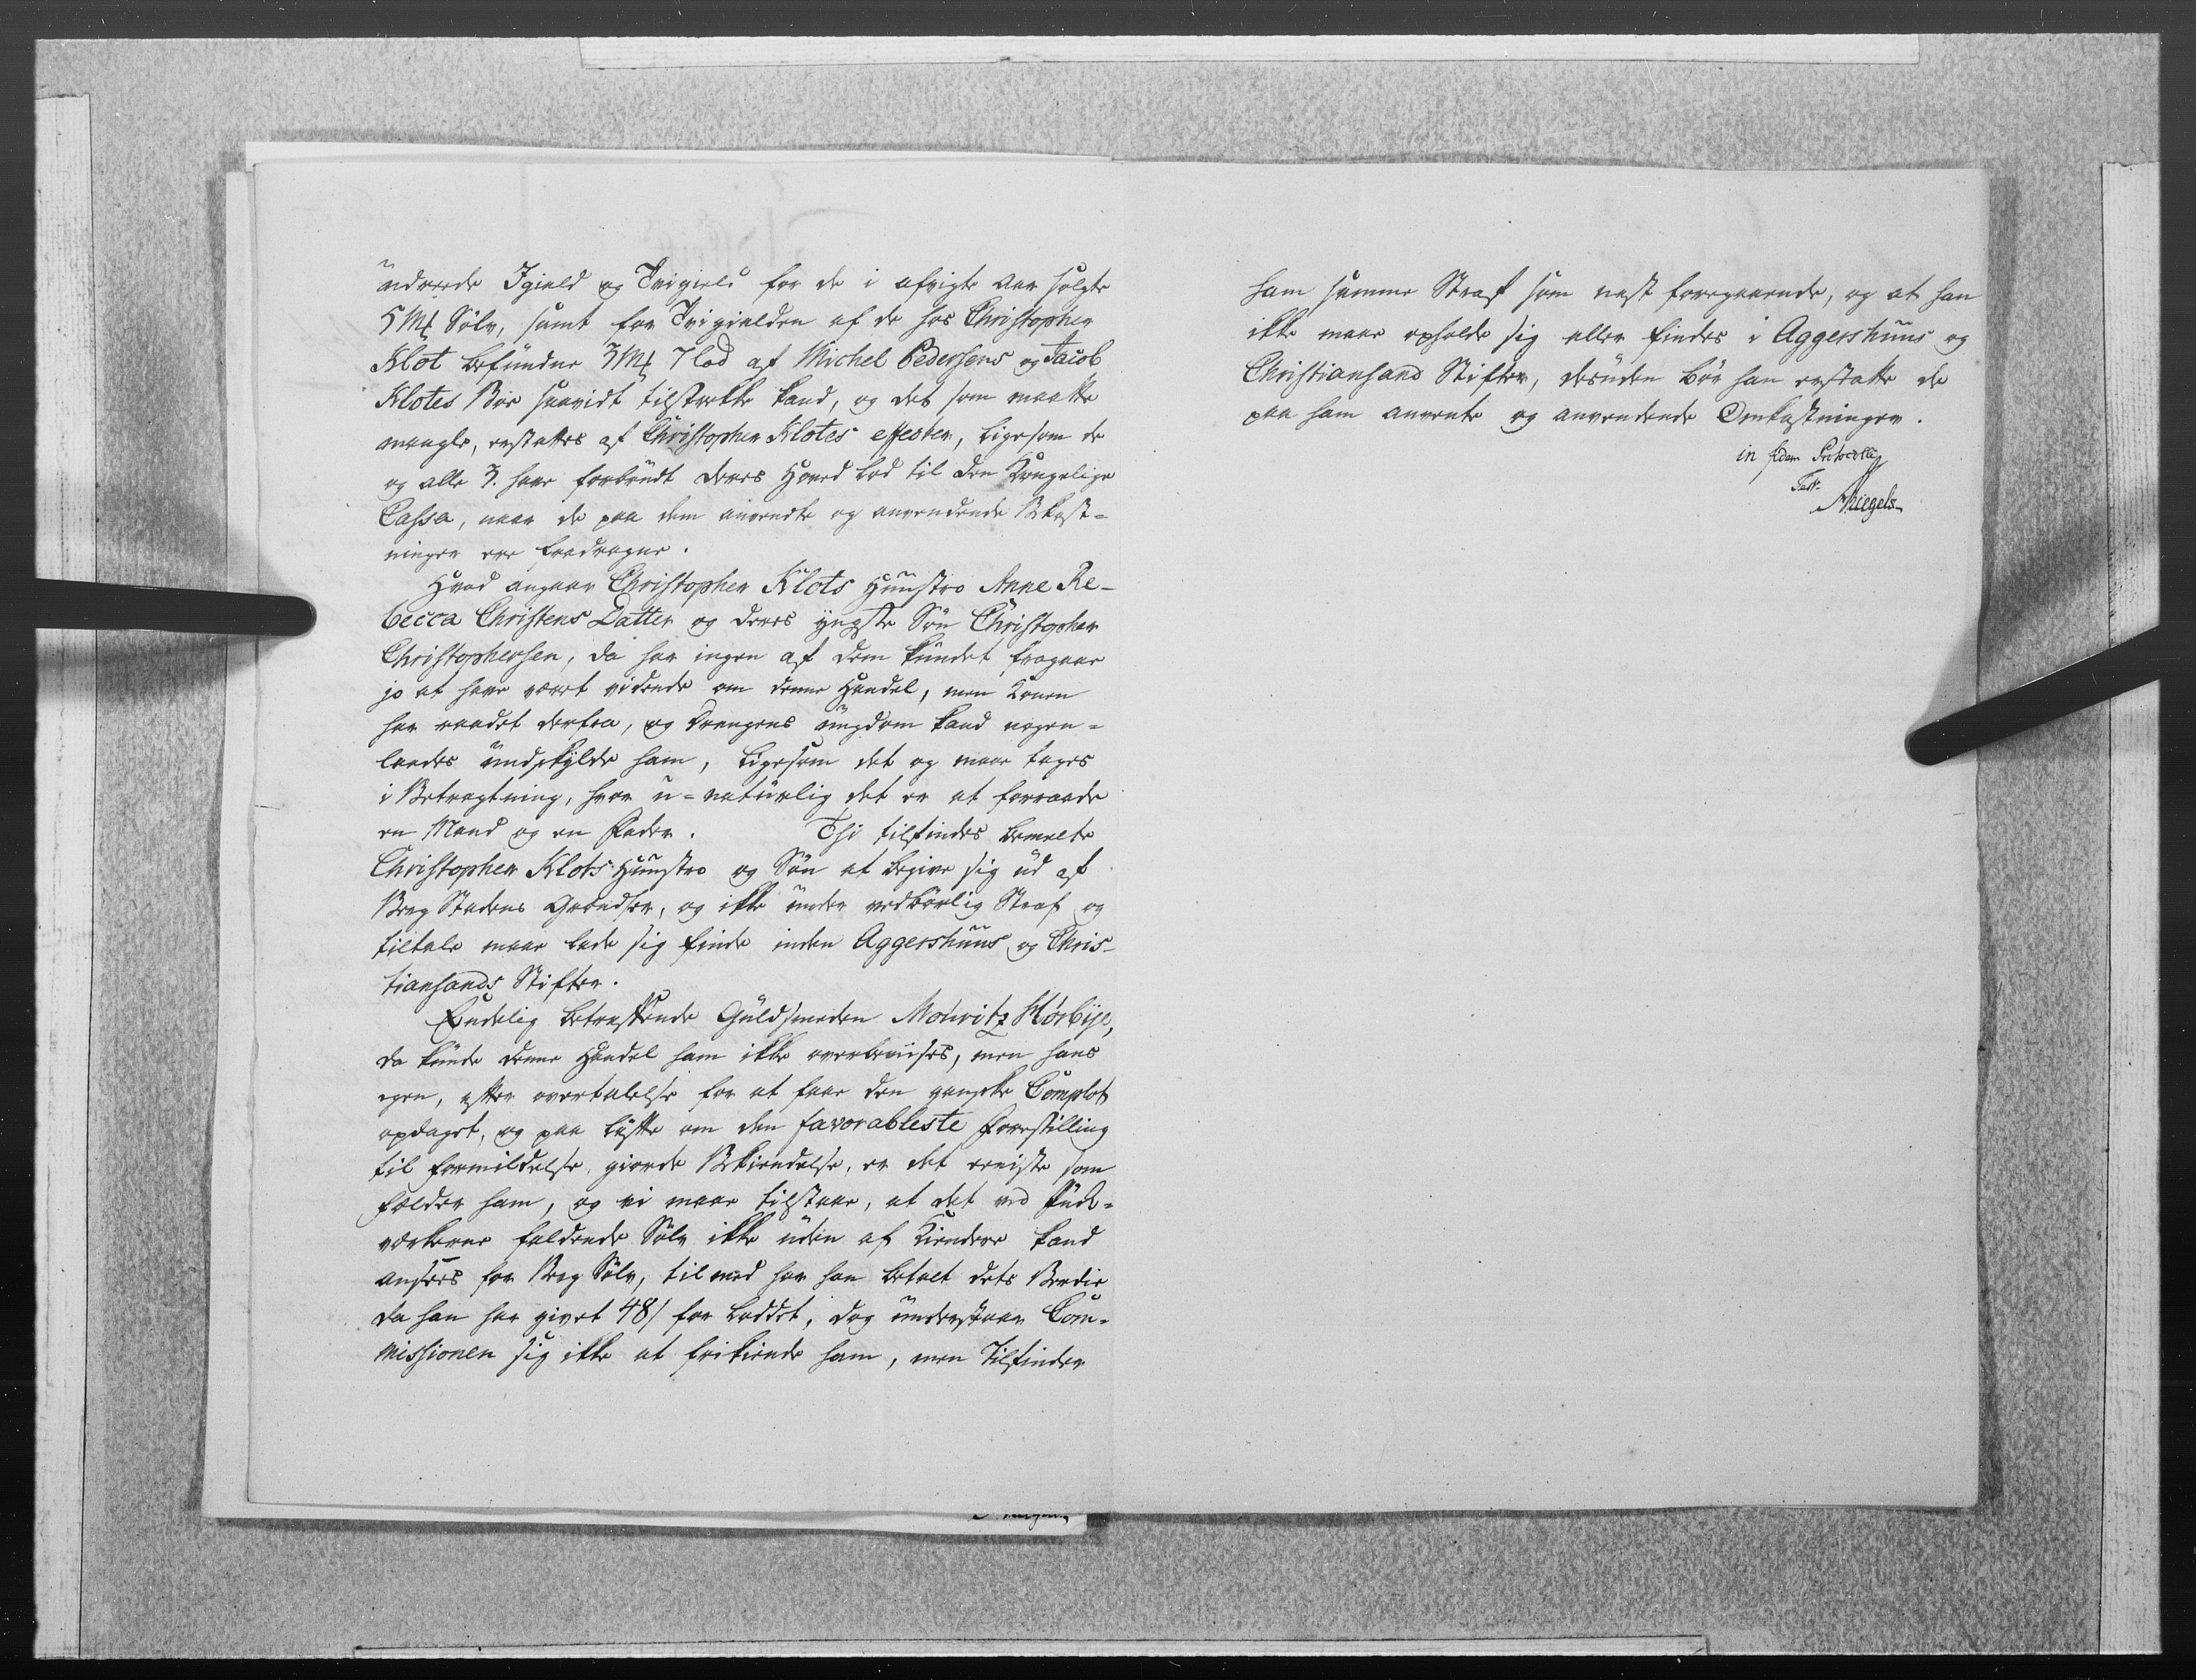 undrede Igield og Tvigield for de i afvigte Aar solgte
5 Mk Sølv, samt for Tvigielden af de hos Christopher
Klot befundne 3 Mk 7 lod af Michel Pedersens og Jacob
Klotes Boe saavidt tilstrekke kand, og det som maatte
mangle, erstattes af Christopher Klotes effecter, ligesom de
og alle 3. have forbrudt deres Hoved Lod til den Kongelige
Cassa, naar de paa dem anvendte og anvendende Bekost-
ninger ere fradragne.
Hvad angaar Christopher Klots Huustro Anne Re-
becca Christens Datter og deres yngste Søn Christopher
Christophersen, da har ingen af dem kundet fragaae
jo at have været vidende om denne Handel, men Konen
har raadet derfra, og Drengens ungdom kand nogen-
lunde undskylde ham, ligesom det og maae tages
i Betragtning, hvor u-naturlig det er at forraade
en Mand og en Fader. Thi tilfindes bemelte
Christopher Klots Huustro og Søn at begive sig ud af
Berg Stadens Grændser, og ikke under vedbørlig Straf og
tiltale maae lade sig finde inden Aggershuus og Chris-
tiansands Stifter.
Endelig betreffende Guldsmeden Mouritz Hørbije,
da kunde denne Handel ham ikke overbevises, men hans
egen, efter overtalelse for at faae den ganske Complot
opdaget, og paa løfte om den favorableste Forestilling
til formildelse, giorde Bekiendelse, er det eeniste som
fælder ham, og vi maae tilstaae, at det ved
værkerne faldende Sølv ikke uden af Kiendere kand
ansees for Berg Sølv, til med har han betalt dets Verdie
da han har givet 48/ for Loddet, dog understaaer Com-
missionen sig ikke at frikiende ham, men Tilfinder
ham samme Straf som nest foregaaende, og at han
ikke maae opholde sig eller findes i Aggershuus og
Christiansand Stifter, desuden bør han erstatte de
paa ham anvente og anvendende Omkostninger.
in fidem Protocolli
Test.